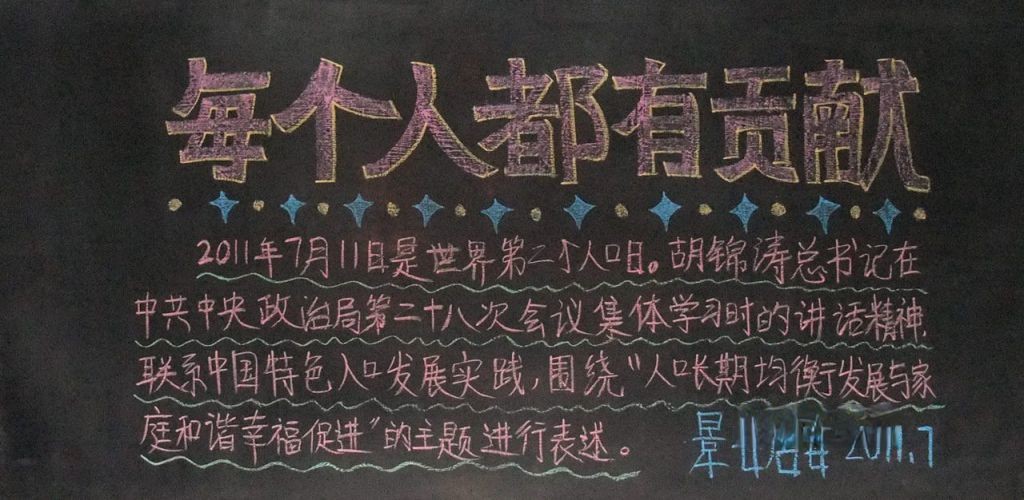 每个人都有贡献
2011年7月11日是世界第二个人口日。胡锦涛总书记在
中共中央政治局第二十八次会议集体学习时的讲话精神.
联系中国特色人口发展实践,围绕"人口长期均衡发展与家
庭和谐幸福促进"的主题进行表述。
2011.7